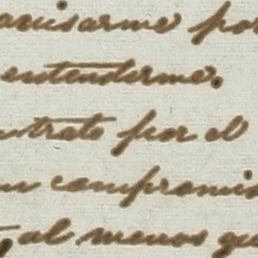 acusarme por
entenderme.
ntrato por el
un compromis
, al menos qu